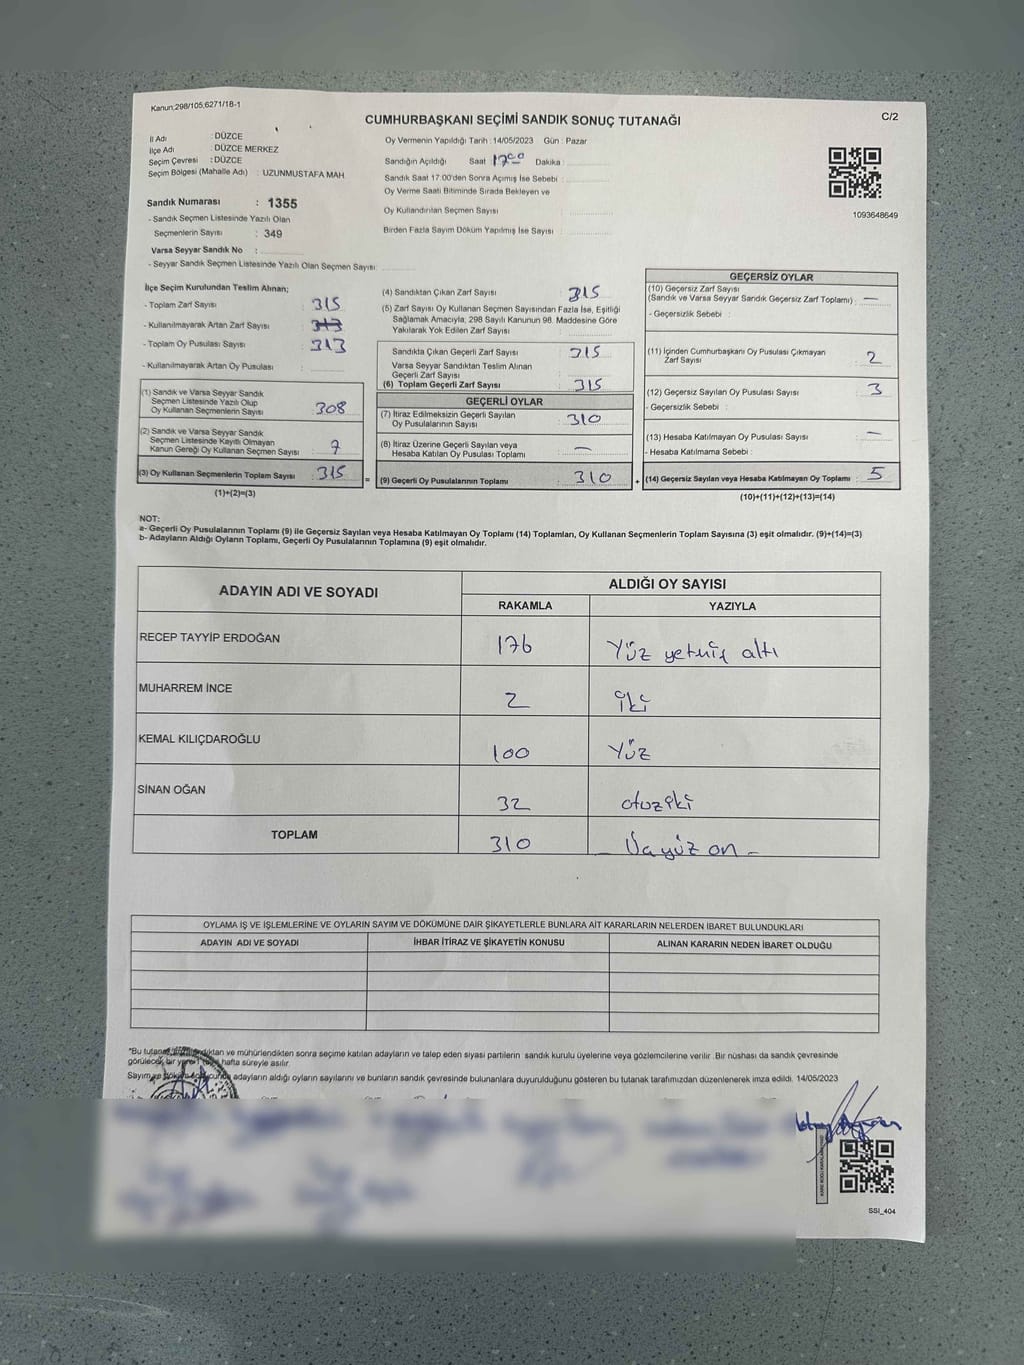 Kanun:298/105,6271/18-1
C/2
CUMHURBAŞKANI SEÇİMİ SANDIK SONUÇ TUTANAĞI
İl Adı : DÜZCE
İlçe Adı : DÜZCE MERKEZ
Seçim Çevresi : DÜZCE
Seçim Bölgesi (Mahalle Adı) : UZUNMUSTAFA MAH.
Sandık Numarası : 1355
- Sandık Seçmen Listesinde Yazılı Olan
Seçmenlerin Sayısı : 349
Varsa Seyyar Sandık No :
- Seyyar Sandık Seçmen Listesinde Yazılı Olan Seçmen Sayısı:
Oy Vermenin Yapıldığı Tarih : 14/05/2023 Gün : Pazar
Sandığın Açıldığı Saat 17:00 Dakika :
Sandık Saat 17.00'den Sonra Açımış İse Sebebi :
Oy Verme Saati Bitiminde Sırada Bekleyen ve
Oy Kullandırılan Seçmen Sayısı :
Birden Fazla Sayım Döküm Yapılmış İse Sayısı :
1093648649
İlçe Seçim Kurulundan Teslim Alınan;
- Toplam Zarf Sayısı : 315
- Kullanılmayarak Artan Zarf Sayısı : 313
- Toplam Oy Pusulası Sayısı : 313
- Kullanılmayarak Artan Oy Pusulası :
(1) Sandık ve Varsa Seyyar Sandık
Seçmen Listesinde Yazılı Olup
Oy Kullanan Seçmenlerin Sayısı : 308
(2) Sandık ve Varsa Seyyar Sandık
Seçmen Listesinde Kayıtlı Olmayan
Kanun Gereği Oy Kullanan Seçmen Sayısı : 7
(3) Oy Kullanan Seçmenlerin Toplam Sayısı : 315 =
(1)+(2)=(3)
(4) Sandıktan Çıkan Zarf Sayısı : 315
(5) Zarf Sayısı Oy Kullanan Seçmen Sayısından Fazla İse, Eşitliği
Sağlamak Amacıyla; 298 Sayılı Kanunun 98. Maddesine Göre
Yakılarak Yok Edilen Zarf Sayısı :
Sandıkta Çıkan Geçerli Zarf Sayısı : 315
Varsa Seyyar Sandıktan Teslim Alınan
Geçerli Zarf Sayısı :
(6) Toplam Geçerli Zarf Sayısı : 315
GEÇERLİ OYLAR
(7) İtiraz Edilmeksizin Geçerli Sayılan
Oy Pusulalarının Sayısı : 310
(8) İtiraz Üzerine Geçerli Sayılan veya
Hesaba Katılan Oy Pusulası Toplamı : —
(9) Geçerli Oy Pusulalarının Toplamı : 310 +
GEÇERSİZ OYLAR
(10) Geçersiz Zarf Sayısı
(Sandık ve Varsa Seyyar Sandık Geçersiz Zarf Toplamı) : —
- Geçersizlik Sebebi :
(11) İçinden Cumhurbaşkanı Oy Pusulası Çıkmayan
Zarf Sayısı : 2
(12) Geçersiz Sayılan Oy Pusulası Sayısı : 3
- Geçersizlik Sebebi :
(13) Hesaba Katılmayan Oy Pusulası Sayısı : —
- Hesaba Katılmama Sebebi :
(14) Geçersiz Sayılan veya Hesaba Katılmayan Oy Toplamı : 5
(10)+(11)+(12)+(13)=(14)
NOT:
a- Geçerli Oy Pusulalarının Toplamı (9) ile Geçersiz Sayılan veya Hesaba Katılmayan Oy Toplamı (14) Toplamları, Oy Kullanan Seçmenlerin Toplam Sayısına (3) eşit olmalıdır. (9)+(14)=(3)
b- Adayların Aldığı Oyların Toplamı, Geçerli Oy Pusulalarının Toplamına (9) eşit olmalıdır.
ADAYIN ADI VE SOYADI ALDIĞI OY SAYISI
RAKAMLA YAZIYLA
RECEP TAYYİP ERDOĞAN 176 Yüz yetmiş altı
MUHARREM İNCE 2 iki
KEMAL KILIÇDAROĞLU 100 Yüz
SİNAN OĞAN 32 otuziki
TOPLAM 310 - Üçyüz on -
OYLAMA İŞ VE İŞLEMLERİNE VE OYLARIN SAYIM VE DÖKÜMÜNE DAİR ŞİKAYETLERLE BUNLARA AİT KARARLARIN NELERDEN İBARET BULUNDUKLARI
ADAYIN ADI VE SOYADI İHBAR İTİRAZ VE ŞİKAYETİN KONUSU ALINAN KARARIN NEDEN İBARET OLDUĞU
"Bu tutanak ve mühürlendikten sonra seçime katılan adayların ve talep eden siyasi partilerin sandık kurulu üyelerine veya gözlemcilerine verilir. Bir nüshası da sandık çevresinde
görülecek bir yere hafta süreyle asılır.
Sayım ve adayların aldığı oyların sayılarını ve bunların sandık çevresinde bulunanlara duyurulduğunu gösteren bu tutanak tarafımızdan düzenlenerek imza edildi. 14/05/2023
SSI_404